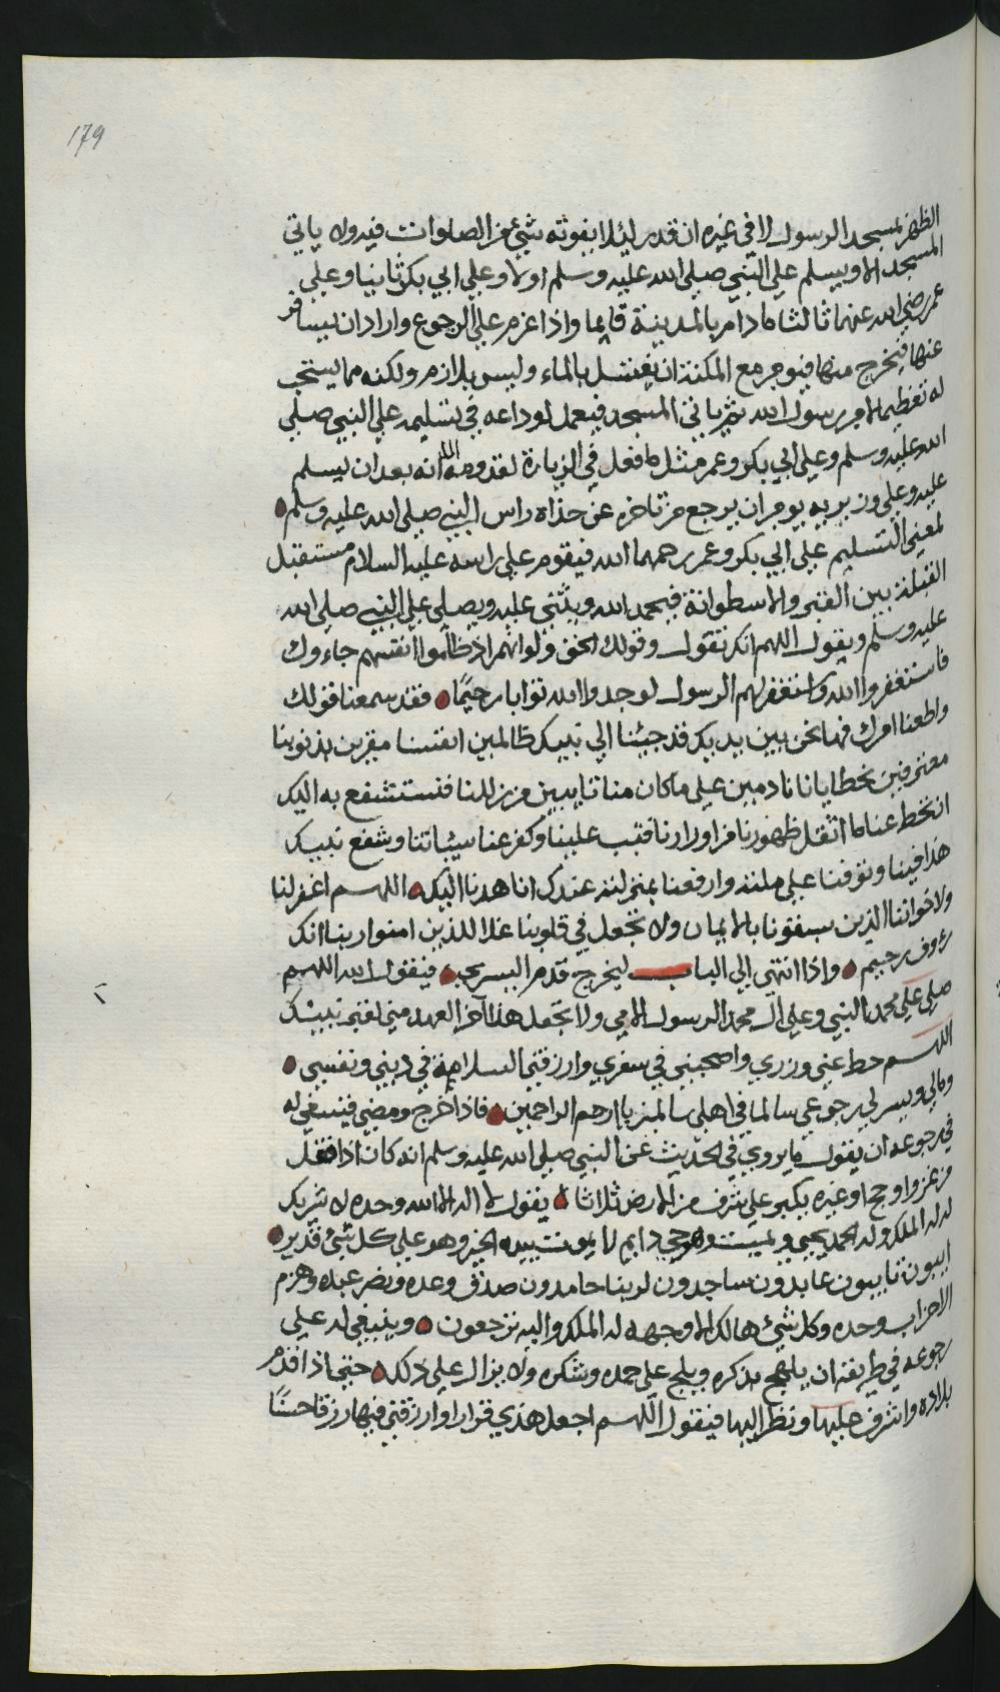 179
الظهر بمسجد الرسول لا في غيره ان قدر لئلا يفوته شئ من الصلوات فيه ولا ياتي
المسجد الا ويسلم علي النبي صلي الله عليه وسلم اولا وعلي ابي بكر ثانيا وعلي
عمر رضي الله عنهما ثالثا ما دام بالمدينة قايما واذا عزم علي الرجوع واراد ان يسافر
عنها فيخرج منها فيوجر مع المكنة ان يغتسل بالماء وليس بلازم ولكنه مما يستحب
له تعظيما لامر رسول الله ثم ياتي المسجد فيعمل لوداعه في تسليمه علي النبي صلي
الله عليه وسلم وعلي ابي بكر وعمر مثل ما فعل في الزيارة لقدومه الا انه بعد ان يسلم
عليه وعلي وزيريه يومر ان يرجع من تاخره عن حذاه راس النبي صلي الله عليه وسلم
لمعني التسليم علي ابي بكر وعمر رحمهما الله فيقوم علي راسه عليه السلام مستقبل
القبلة بين القبر والاسطوانة فيحمد الله ويثني عليه ويصلي علي النبي صلي الله
عليه وسلم ويقول اللهم انك تقول وقولك الحق ولو انهم اذ ظلموا انفسهم جاءوك
فاستغفروا الله واستغفر لهم الرسول لوجدوا الله توابا رحيما فقد سمعنا قولك
واطعنا امرك فها نحن بين يديك قد جيئنا الي نبيك ظالمين انفسنا مقرين بذنوبنا
معترفين بخطايانا نادمين علي ما كان منا تايبين من زللنا فنستشفع به اليك
ان تحط عنا ما اثقل ظهورنا من اوزارنا فتب علينا وكفر عنا سيئاتنا وشفع نبيك
هذا فينا وتوفنا علي ملته وارفعنا بمنزلته عندك انا هدنا اليك اللهم اغفر لنا
ولاخواننا الذين سبقونا بالايمان ولا تجعل في قلوبنا غلا للذين امنوا ربنا انك
رؤوف رحيم واذا انتهي الي الباب ليخرج قدم اليسري فيقول الله اللهم
صلي علي محمد النبي وعلي ال محمد الرسول الامي ولا تجعل هذا آخر العهد مني لقبر نبيك
اللهم حط عني وزري واصحبني في سفري وارزقني السلامة في ديني ونفسي
ومالي ويسر لي رجوعي سالما في اهلي سالمين يا ارحم الراحمين فاذا خرج ومضي فينبغي له
في رجوعه ان يقول ما يروي في الحديث عن النبي صلي الله عليه وسلم انه كان اذا قفل
من غزو او حج او غيره يكبر علي شرف من الارض ثلاثا يقول لا اله الا الله وحده لا شريك
له له الملك وله الحمد يحيي ويميت وهو حي دايم لا يموت بيده الخير وهو علي كل شئ قدير
ايبون تايبون عابدون ساجدون لربنا حامدون صدق وعده ونصر عبده وهزم
الاحزاب وحده وكل شئ هالك الا وجهه له الملك واليه ترجعون وينبغي له علي
رجوعه في طريقه ان يلهج بذكره ويلج علي حمده وشكره ولا يزال علي ذلك حتي اذا قدم
بلاده واشرف عليها ونظر اليها فيقول اللهم اجعل هذي قرارا وارزقني فيها رزقا حسنا